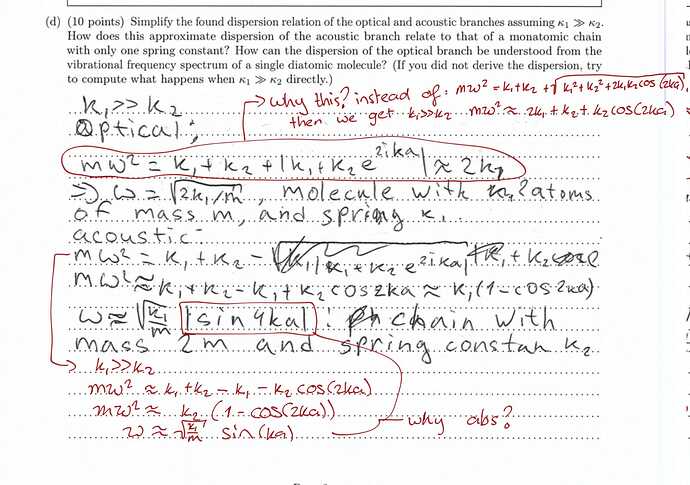 (d) (10 points) Simplify the found dispersion relation of the optical and acoustic branches assuming κ₁ ≫ κ₂.
How does this approximate dispersion of the acoustic branch relate to that of a monatomic chain
with only one spring constant? How can the dispersion of the optical branch be understood from the
vibrational frequency spectrum of a single diatomic molecule? (If you did not derive the dispersion, try
to compute what happens when κ₁ ≫ κ₂ directly.)
why this? instead of: mω² = k₁+k₂ + √k₁²+k₂²+2k₁k₂cos(2ka),
k₁ >> k₂
then we get k₁>>k₂ mω² ≈ 2k₁ + k₂ + k₂ cos(2ka)
Optical:
mω² = k₁ + k₂ + |k₁ + k₂ e^{2ika}| ≈ 2k₁
=> ω = √2k₁/m , molecule with 2 atoms
of mass m, and spring κ₁
acoustic:
mω² = k₁ + k₂ - κ₁ + κ₂ e^{2ika}
mω² ≈ k₁ + k₂ - k₁ + k₂ cos2ka ≈ k₁(1-cos2ka)
ω ≈ √k₁/m |sin4ka| : chain with
mass 2m and spring constan κ₂
k₁>>k₂
mω² ≈ k₁ + k₂ - k₁ - k₂ cos(2ka)
mω² ≈ k₂ (1 - cos(2ka))
why abs?
ω ≈ √k₁/m sin(ka)